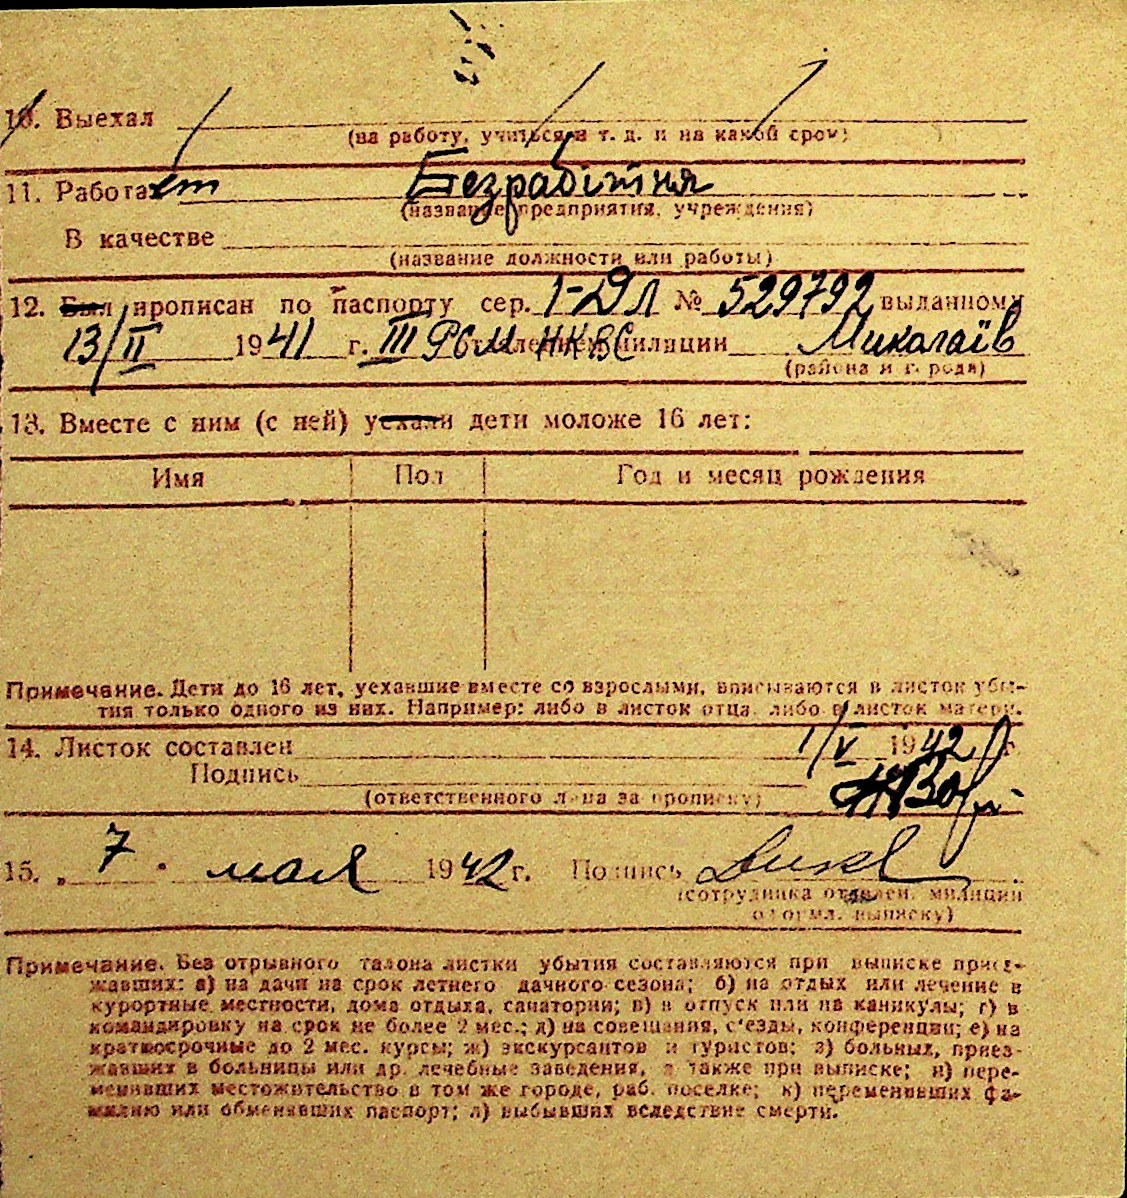 10. Выехал
(на работу, учиться и т. д. и на какой срок)
11. Работает Безработіня
(название предприятия, учреждения)
В качестве
(название должности или работы)
12. Был прописан по паспорту сер. 1-ДЛ № 529792 выданному
13/II 1941 г. III РСМ НКВС милиции Миколаїв
(района и города)
13. Вместе с ним (с ней) уехали дети моложе 16 лет:
Имя Пол Год и месяц рождения
Примечание. Дети до 16 лет, уехавшие вместе со взрослыми, вписываются в листок убы-
тия только одного из них. Например: либо в листок отца, либо в листок матери.
14. Листок составлен 1/V 1942 г.
Подпись
(ответственного лица за прописку)
15. „ 7 " мая 1942 г. Подпись
(сотрудника отделен. милиции
оформл. выписку)
Примечание. Без отрывного талона листки убытия составляются при выписке приез-
жавших: а) на дачи на срок летнего дачного сезона; б) на отдых или лечение в
курортные местности, дома отдыха, санатории; в) в отпуск или на каникулы; г) в
командировку на срок не более 2 мес.; д) на совещания, с'езды, конференции; е) на
краткосрочные до 2 мес. курсы; ж) экскурсантов и туристов; з) больных, приез-
жавших в больницы или др. лечебные заведения, а также при выписке; и) пере-
менивших местожительство в том же городе, раб. поселке; к) переменивших фа-
милию или обменявших паспорт; л) выбывших вследствие смерти.